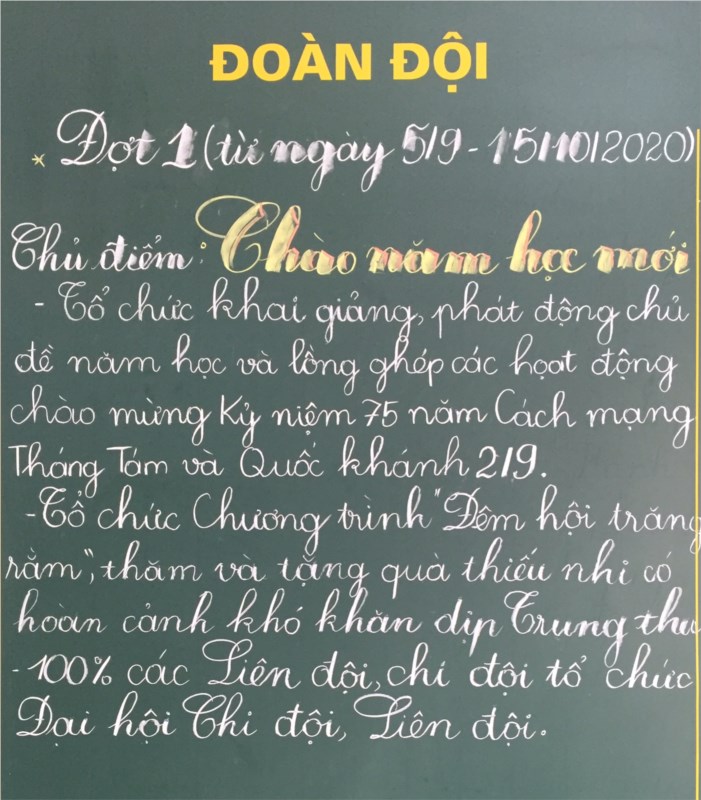 ĐOÀN ĐỘI
* Đợt 1 (từ ngày 5/9 - 15/10/2020)
Chủ điểm: Chào năm học mới
- Tổ chức khai giảng, phát động chủ
đề năm học và lồng ghép các hoạt động
chào mừng Kỷ niệm 75 năm Cách mạng
Tháng Tám và Quốc khánh 2/9.
- Tổ chức Chương trình "Đêm hội trăng
rằm", thăm và tặng quà thiếu nhi có
hoàn cảnh khó khăn dịp Trung thu
- 100% các Liên đội, chi đội tổ chức
Đại hội Chi đội, Liên đội.